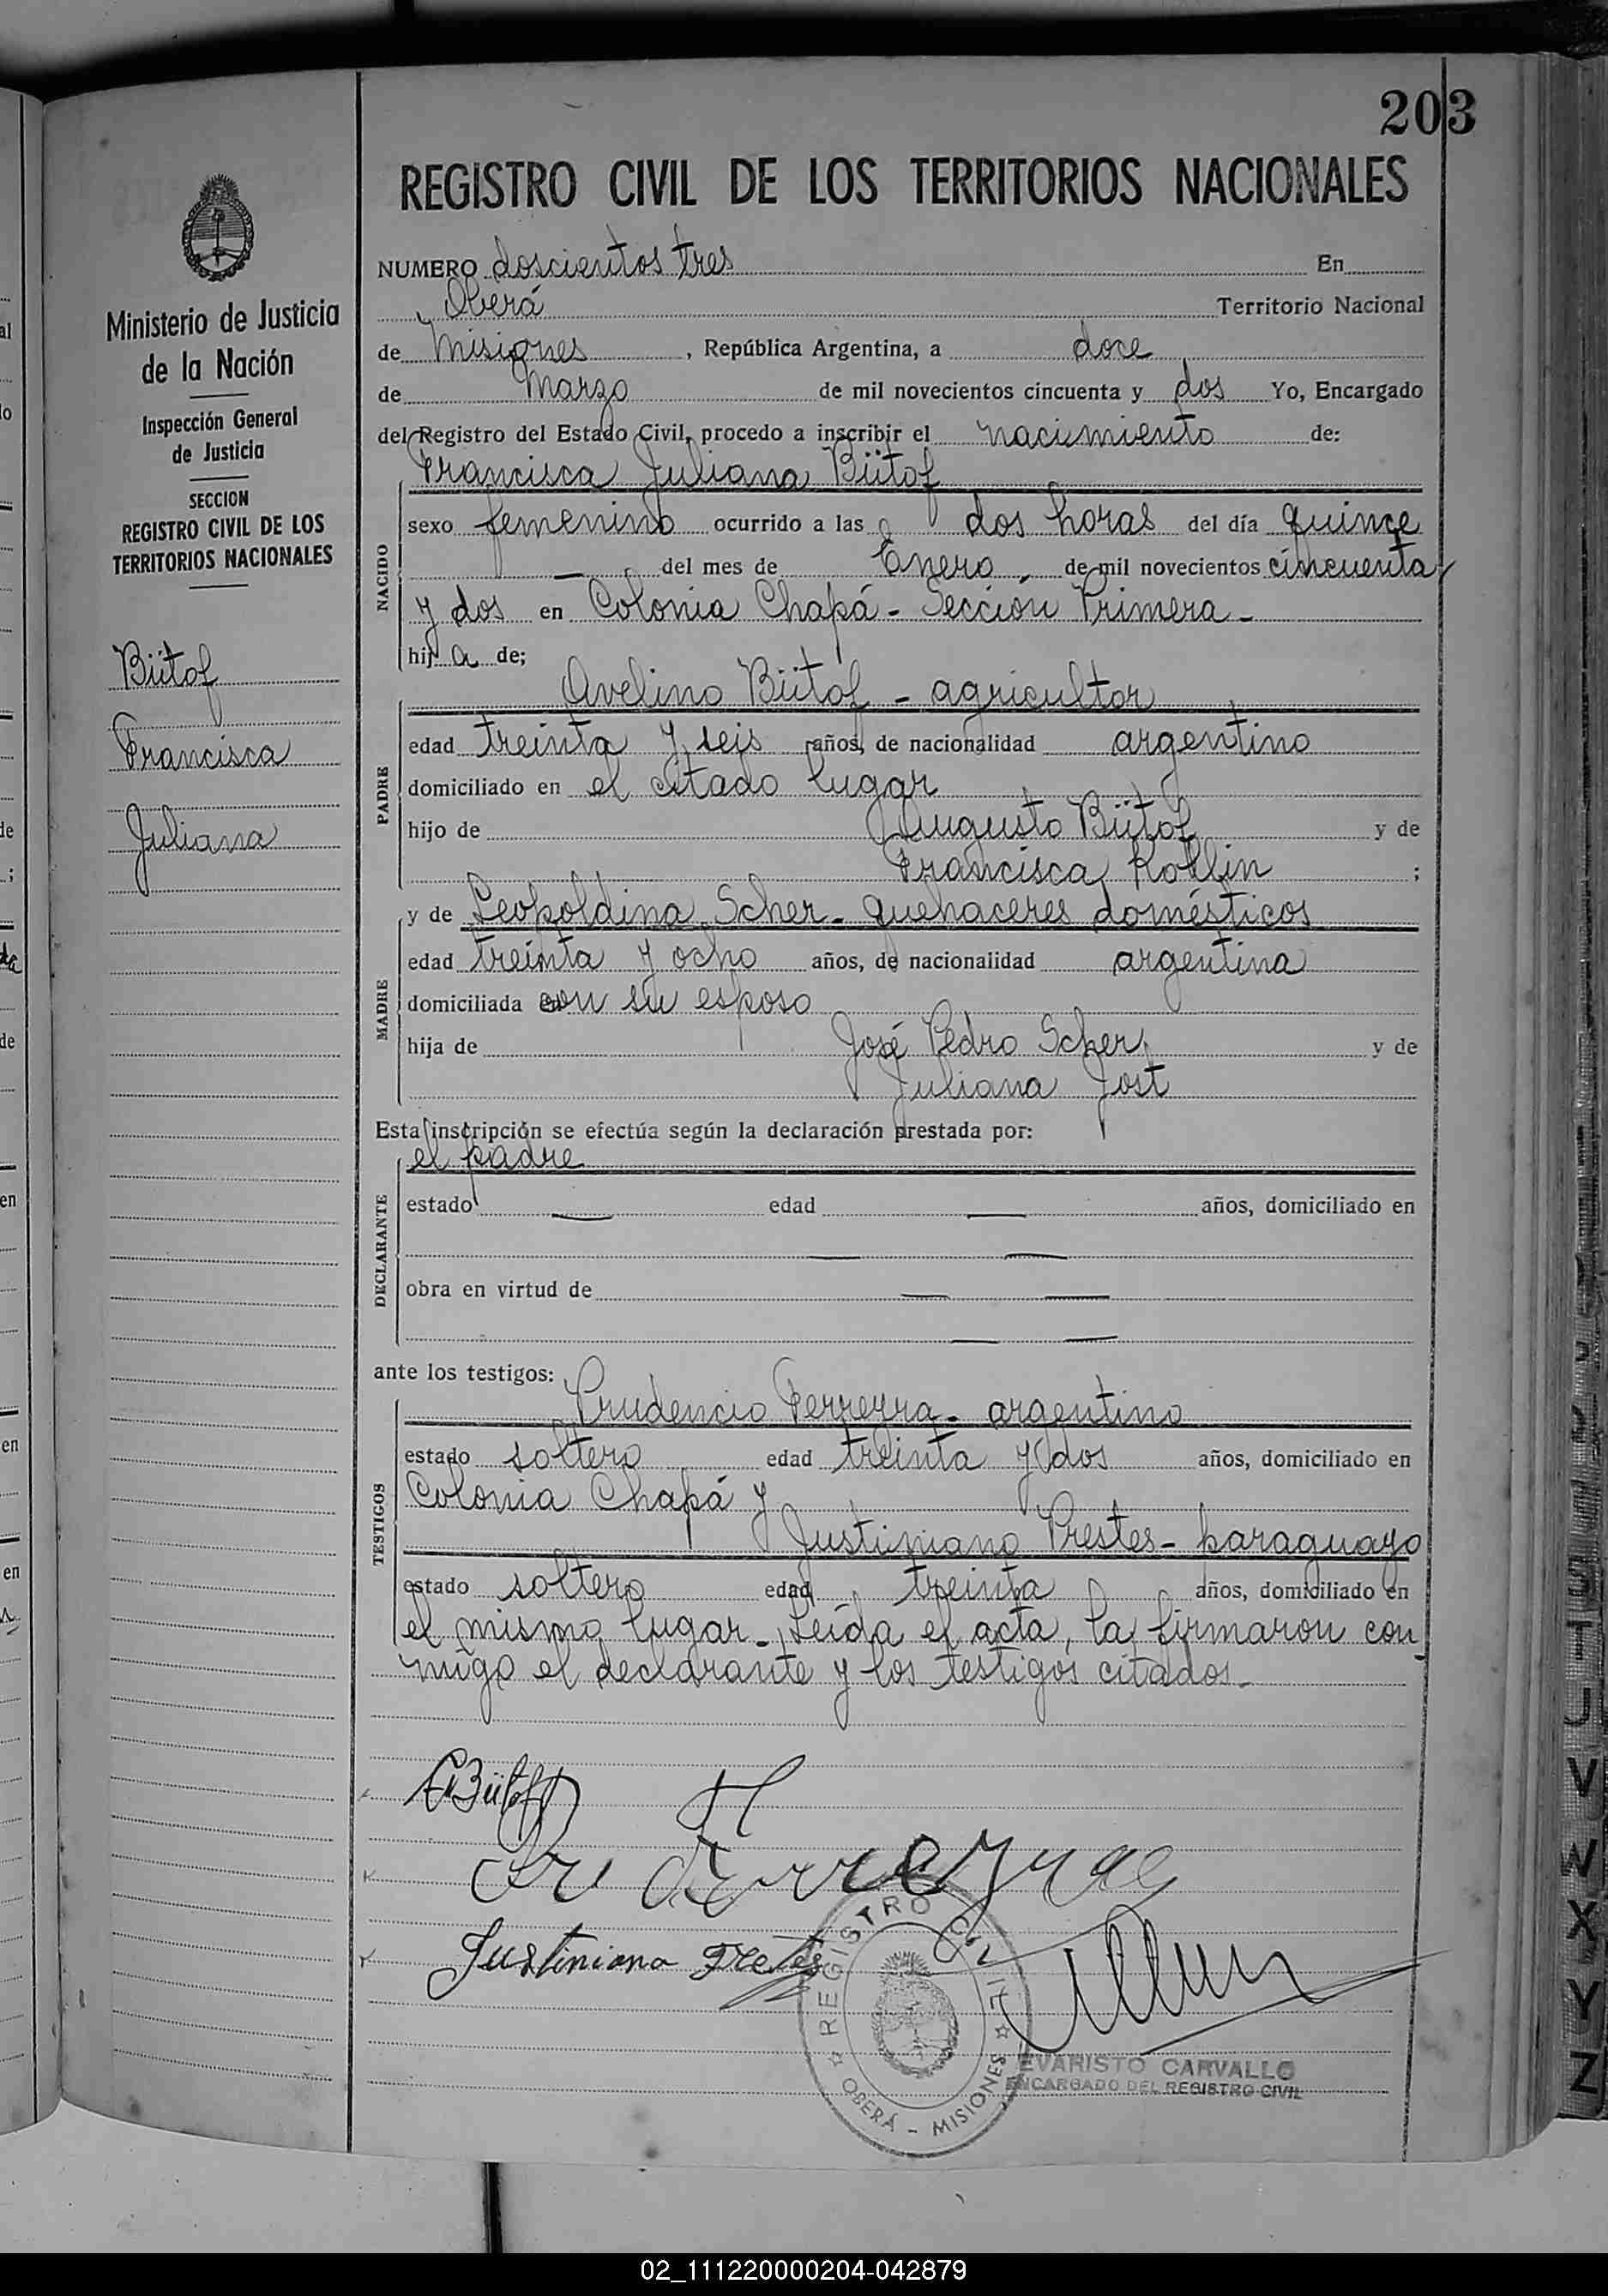 203
REGISTRO CIVIL DE LOS TERRITORIOS NACIONALES
Ministerio de Justicia
de la Nación
Inspección General
de Justicia
SECCION
REGISTRO CIVIL DE LOS
TERRITORIOS NACIONALES
Bütof
Francisca
Juliana
NUMERO doscientos tres En
Oberá Territorio Nacional
de Misiones, República Argentina, a doce
de Marzo de mil novecientos cincuenta y dos Yo, Encargado
del Registro del Estado Civil, procedo a inscribir el nacimiento de:
Francisca Juliana Bütof
NACIDO
sexo femenino ocurrido a las dos horas del día quince
— del mes de Enero, de mil novecientos cincuenta
y dos en Colonia Chapá - Seccion Primera -
hij a de;
Avelino Bütof - agricultor
PADRE
edad treinta y seis años, de nacionalidad argentino
domiciliado en el citado lugar
hijo de Augusto Bütof y de
Francisca ;
y de Leopoldina Scher - quehaceres domésticos
MADRE
edad treinta y ocho años, de nacionalidad argentina
domiciliada con su esposo
hija de José Pedro Scher y de
Juliana Jost
Esta inscripción se efectúa según la declaración prestada por:
el padre
DECLARANTE
estado — edad — años, domiciliado en
— —
obra en virtud de — —
— —
ante los testigos:
Prudencio Ferreyra - argentino
TESTIGOS
estado soltero edad treinta y dos años, domiciliado en
Colonia Chapá y
Justiniano Prestes - paraguayo
estado soltero edad treinta años, domiciliado en
el mismo lugar - Leída el acta, la firmaron con
migo el declarante y los testigos citados -
A Bütof
Justiniano
REGISTRO CIVIL
OBERÁ - MISIONES
EVARISTO CARVALLO
ENCARGADO DEL REGISTRO CIVIL
S
T
U
V
W
X
Y
Z
02_111220000204-042879